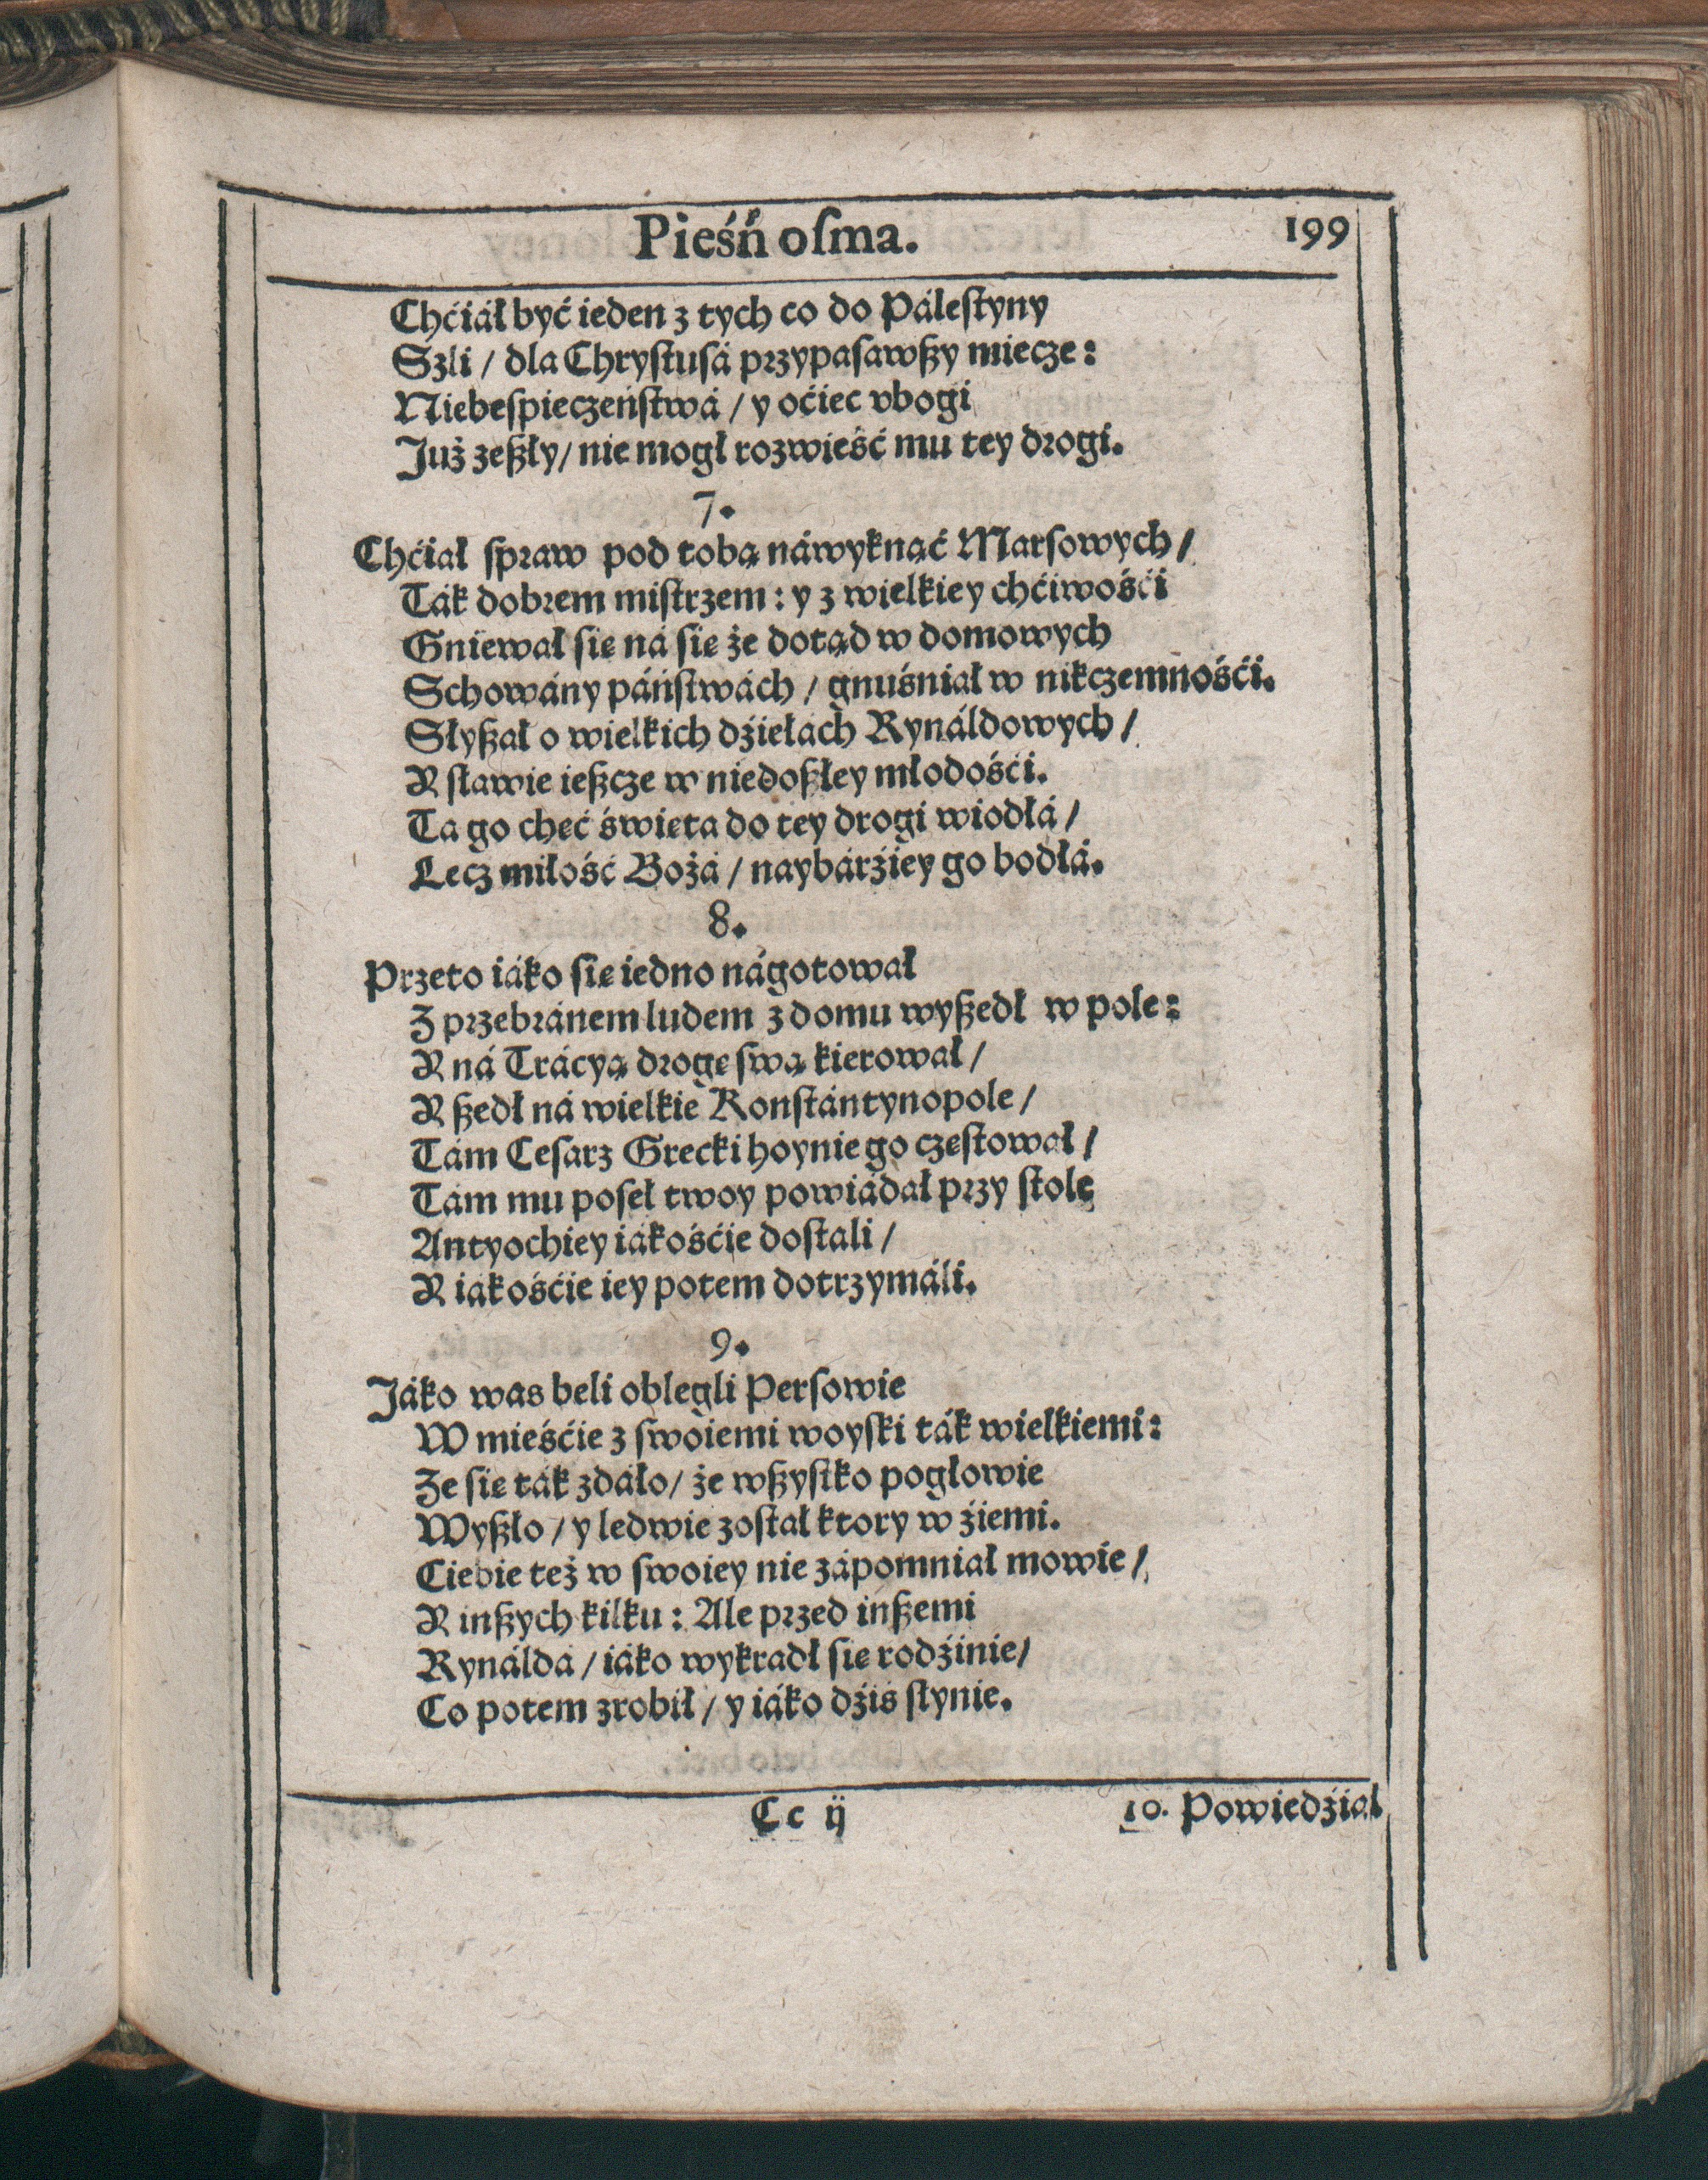 Pieśń oſma.
199
Chćiáł być ieden z tych co do Páleſtyny
Szli / dla Chryſtuſá przypaſawſzy miecze:
Niebeſpieczeńſtwá / y oćiec vbogi
Już zeſzły / nie mogł rozwieść mu tey drogi.
7.
Chćiał ſpraw pod tobą náwyknąć Marſowych /
Ták dobrem miſtrzem: y z wielkiey chćiwośći
Gniewał ſię ná ſię że dotąd w domowych
Schowány páńſtwách / gnuśniał w nikczemnośći.
Słyſzał o wielkich dźiełách Rynáldowych /
Y ſławie ieſzcze w niedoſzłey młodośći.
Ta go chęć święta do tey drogi wiodłá /
Lecz miłość Boża / naybárźiey go bodłá.
8.
Przeto iáko ſię iedno nágotował
Z przebránem ludem z domu wyſzedł w pole:
Y ná Trácyą drogę ſwą kierował /
Y ſzedł ná wielkie Konſtántynopole /
Tám Ceſarz Grecki hoynie go częſtował /
Tám mu poſeł twoy powiádał przy ſtole
Antyochiey iákośćie doſtali /
Y iákośćie iey potem dotrzymáli.
9.
Jáko was beli oblegli Perſowie
W mieśćie z ſwoiemi woyſki ták wielkiemi:
Że ſię ták zdáło / że wſzyſtko pogłowie
Wyſzło / y ledwie zoſtał ktory w źiemi.
Ciebie też w ſwoiey nie zápomniał mowie /
Y inſzych kilku: Ale przed inſzemi
Rynáldá / iáko wykradł ſię rodźinie /
Co potem zrobił / y iáko dźiś ſłynie.
Cc ij
10. Powiedźiał